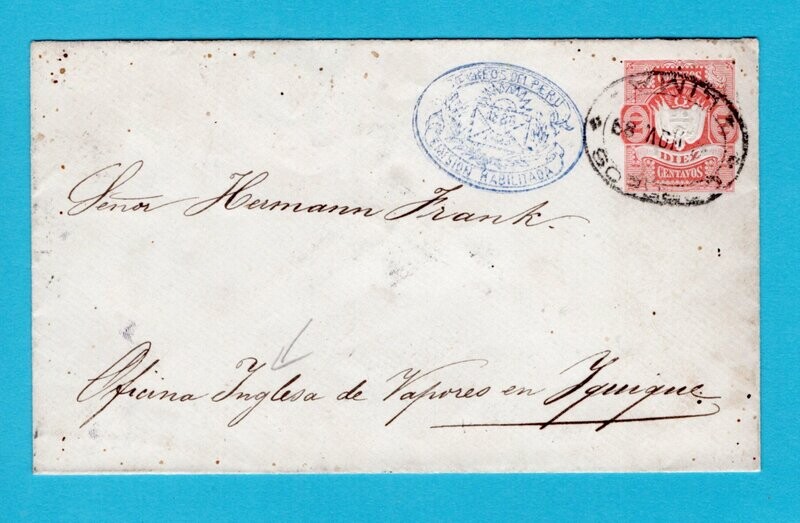 CORREOS DEL PERU
EMISION HABILITADA
10
DIEZ
CENTAVOS
Señor Hermann Frank.
Oficina Inglesa de Vapores en Iquique.